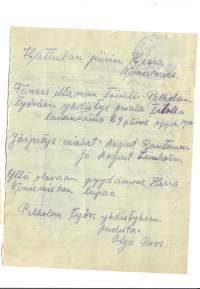 Hattulan piirin Herra
Nimismies.
Tanssi iltaman toimii Pelkolan
Työväen yhdistys omalla talolla
lauantaina 29 päivä
Järjestys miehet: August Rautanen
ja August Lindholm
Yllä olevaan pyydämme Herra
Nimismiehen lupaa
Pelkolan Työv. yhdistyksen
puolesta.
Olga Roos.